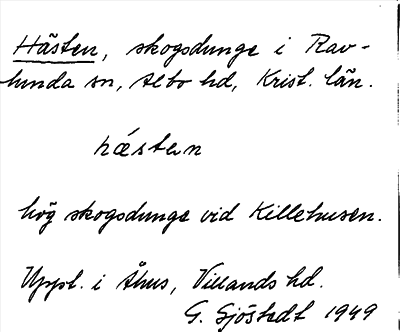 Hästen, skogsdunge i Rav-
lunda sn, Albo hd, Krist. län.
hǽstɘn
hög skogsdunge vid Killehusen.
Uppl. i Åhus, Villands hd.
G. Sjöstedt 1949